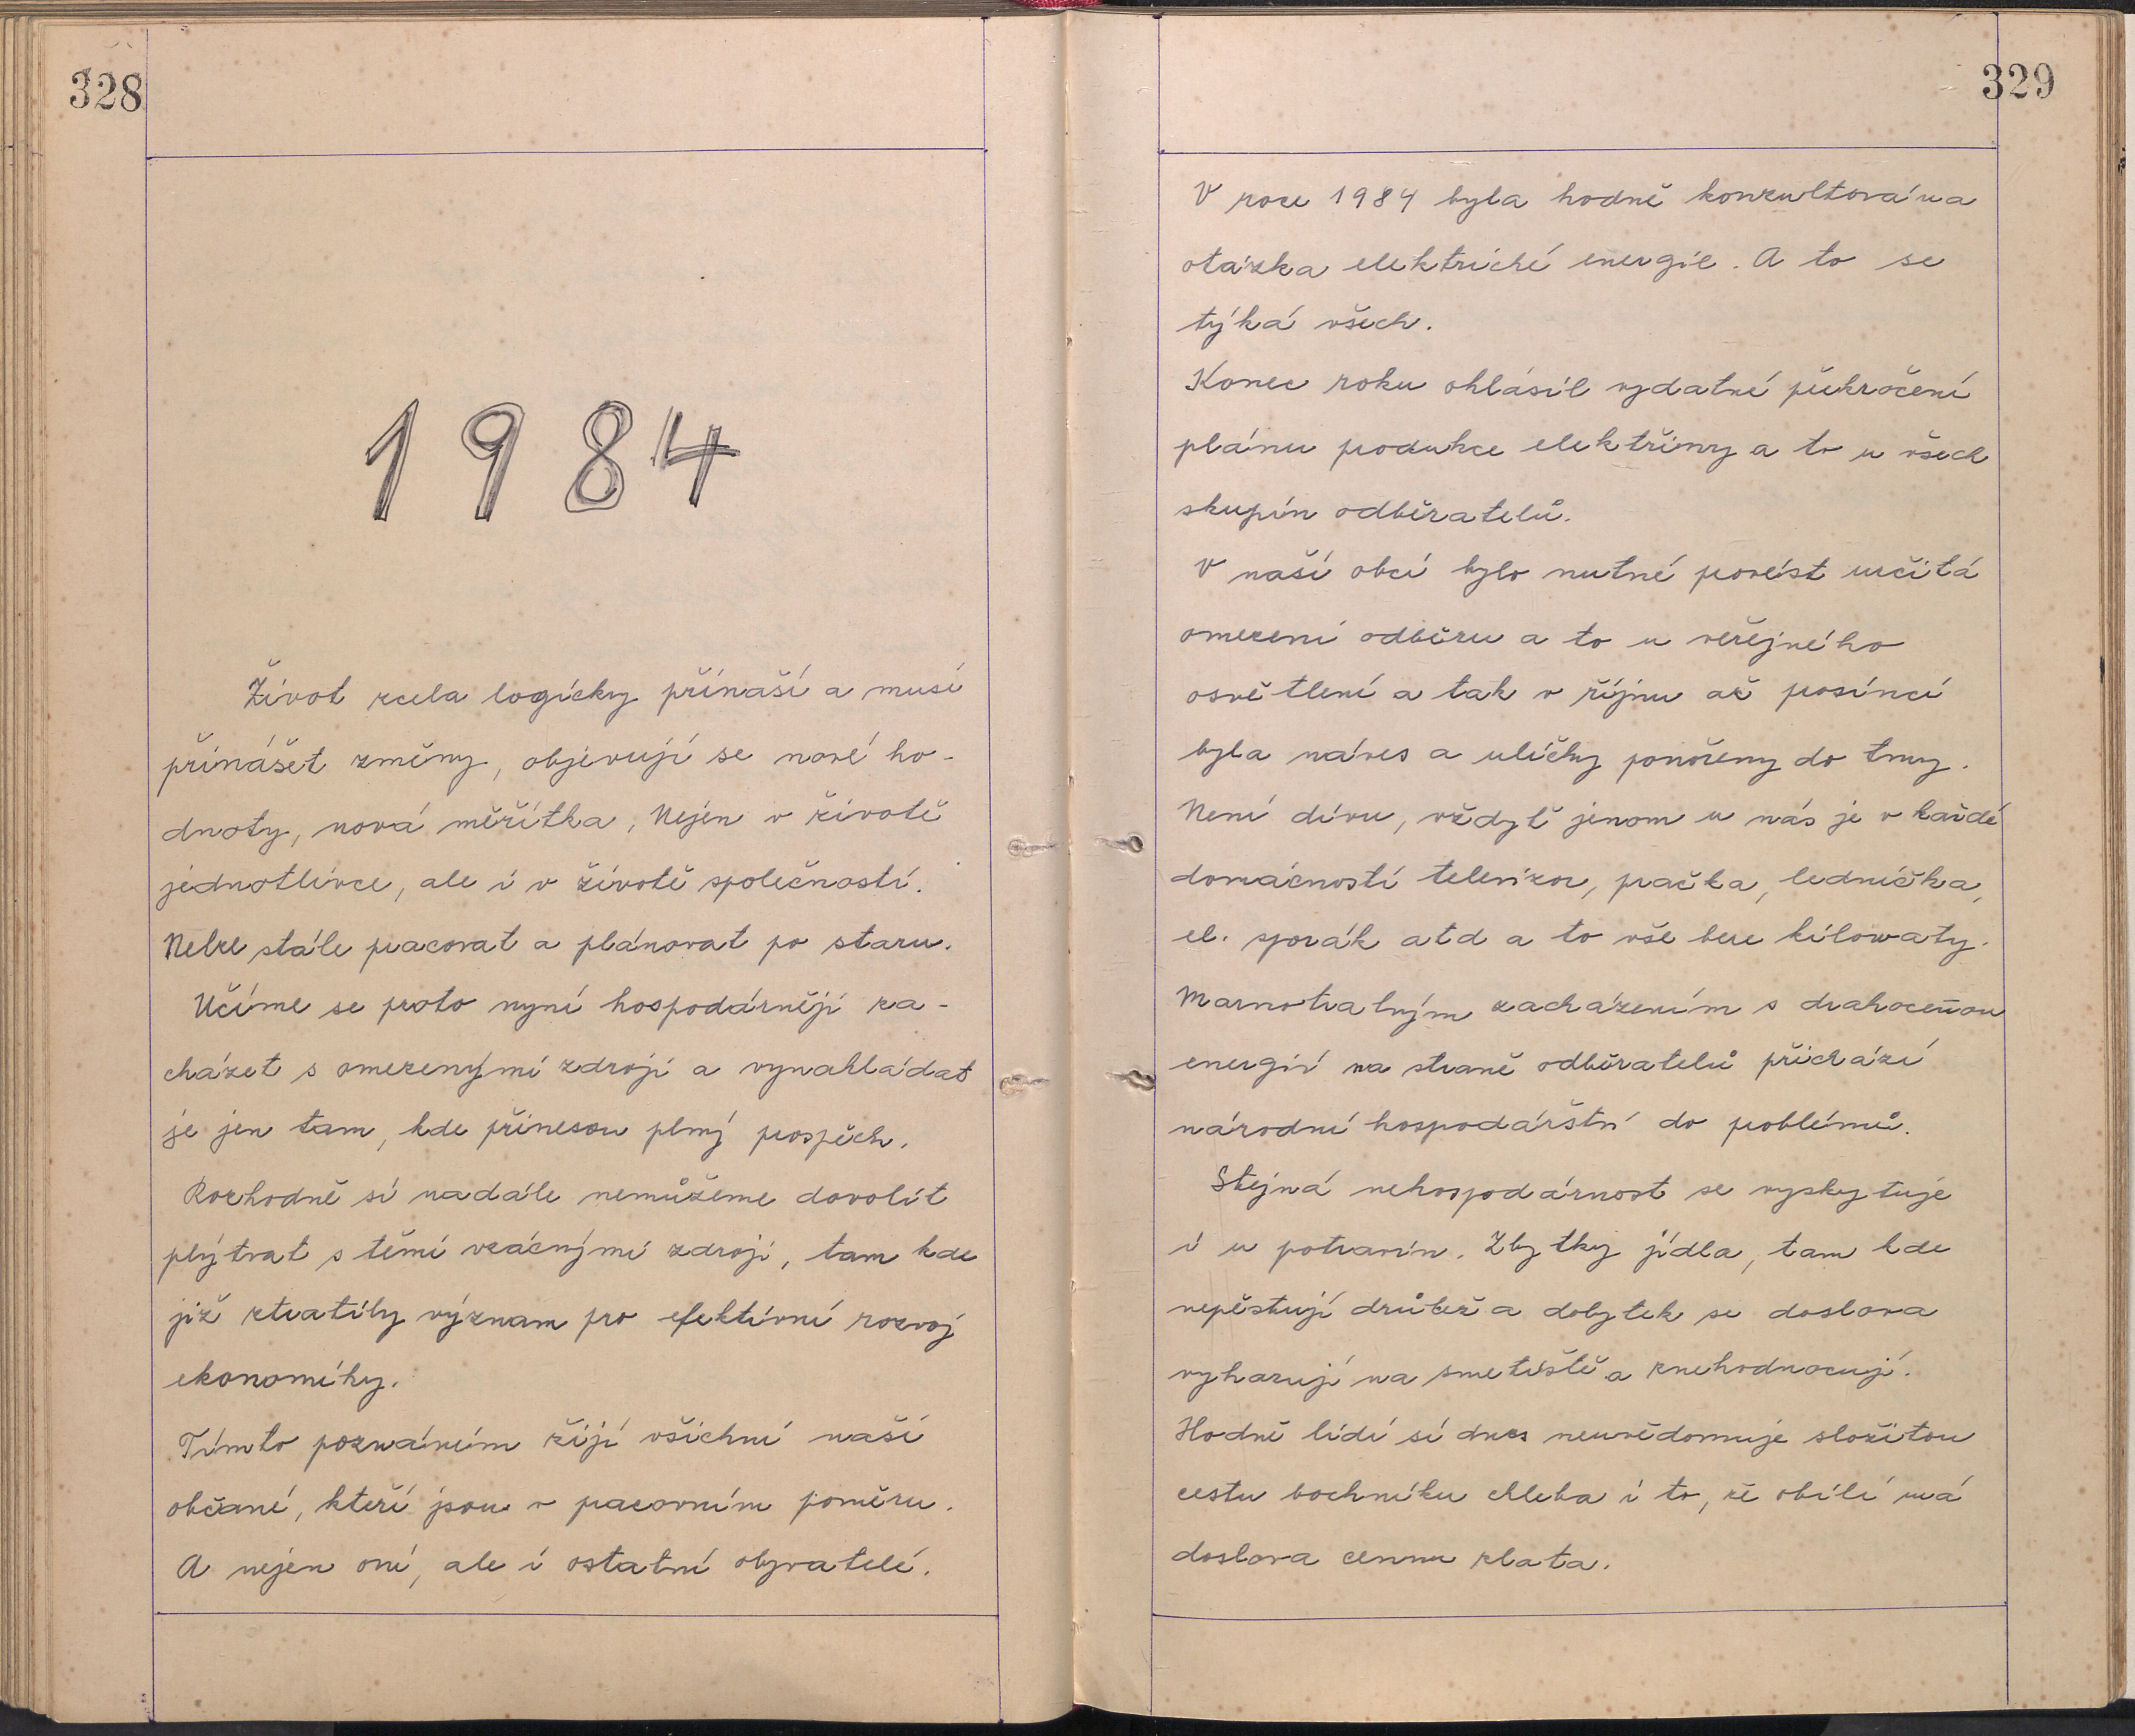 328
1984
Život zcela logicky přináší a musí
přinášet změny, objevují se nové ho-
dnoty, nová měřítka, Nejen v životě
jednotlivce, ale i v životě společnosti.
Nelze stále pracovat a plánovat po staru.
Učíme se proto nyní hospodárněji za-
cházet s omezenými zdroji a vynakládat
je jen tam, kde přinesou plný prospěch.
Rozhodně si nadále nemůžeme dovolit
plýtvat s těmi vzácnými zdroji, tam kde
již ztratily význam pro efektivní rozvoj
ekonomiky.
Tímto poznáním žijí všichni naši
občané, kteří jsou v pracovním poměru.
A nejen oni, ale i ostatní obyvatelé.
329
V roce 1984 byla hodně konzultována
otázka elektrické energie. A to se
týká všech.
Konec roku ohlásil vydatné překročení
plánu produkce elektřiny a to u všech
skupin odběratelů.
V naší obci bylo nutné provést určitá
omezení odběru a to u veřejného
osvětlení a tak v říjnu až prosinci
byla náves a uličky ponořeny do tmy.
Není divu, vždyť jenom u nás je v každé
domácnosti televizor, pračka, lednička,
el. sporák atd a to vše bere kilowaty.
Marnotratným zacházením s drahocennou
energií na straně odběratelů přichází
národní hospodářství do problémů.
Stejná nehospodárnost se vyskytuje
i u potravin. Zbytky jídla, tam kde
nepěstují drůbež a dobytek se doslova
vyhazují na smetiště a znehodnocují.
Hodně lidí si dnes neuvědomuje složitou
cestu bochníku chleba i to, že obilí má
doslova cennu zlata.